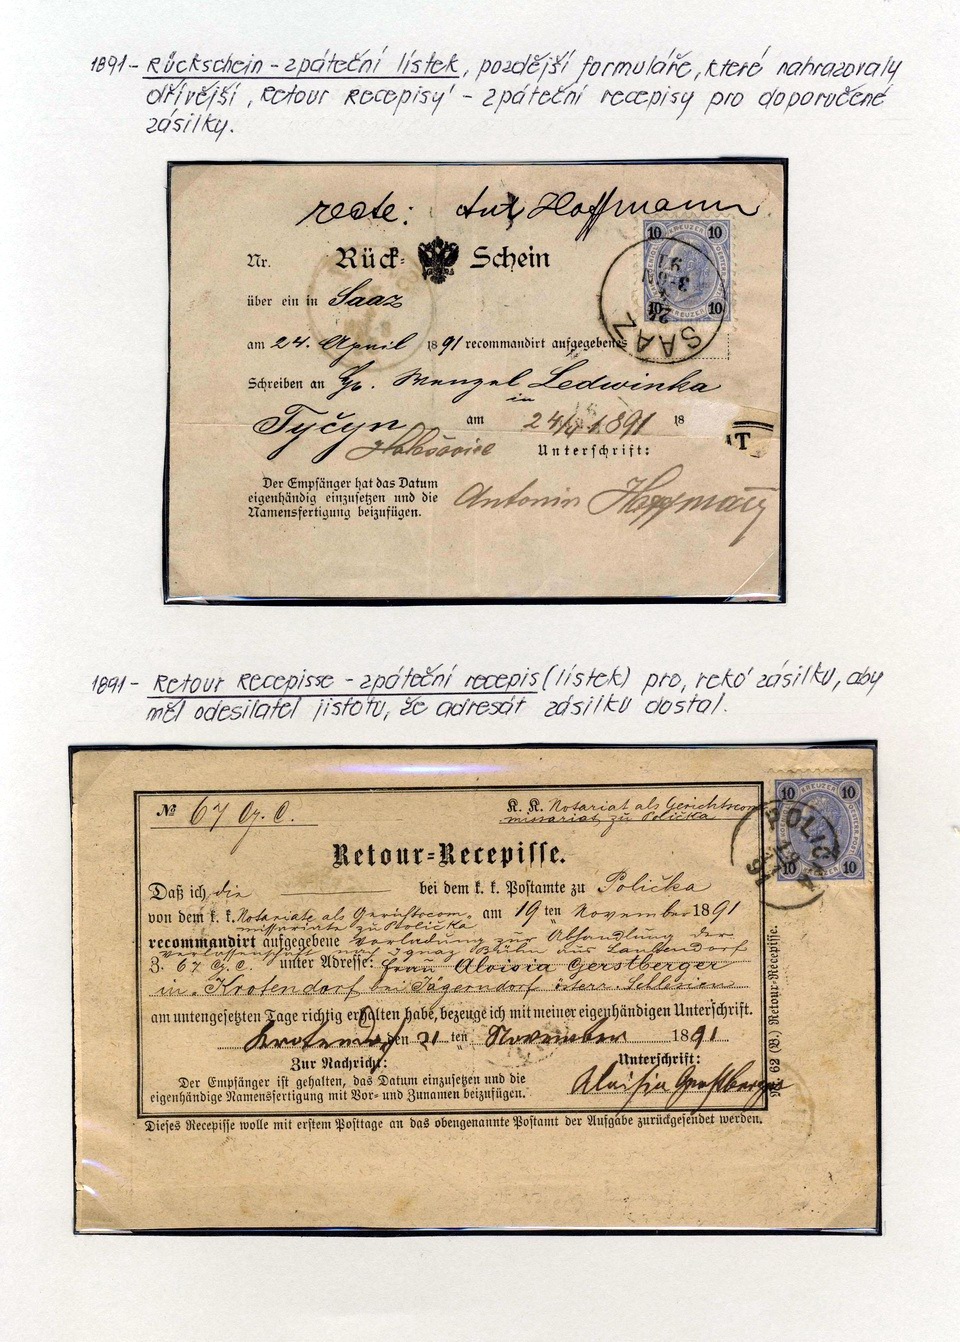 1891 - Rückschein - zpáteční lístek, pozdější formuláře, které nahrazovaly
dřívější, Retour Recepisy' - zpáteční recepisy pro doporučené
zásilky.
recte: Ant Hoffmann
Nr. Rück- Schein
10 10
10 10
SAAZ
über ein in Saaz
am 24. April 1891 recommandirt aufgegebenes
Schreiben an Wenzel Ledwinka
in
Tyčyn am 24/4 1891 18
Unterschrift:
Der Empfänger hat das Datum
eigenhändig einzusetzen und die
Namensfertigung beizufügen.
Antonin Hoffmann
1891 - Retour Recepisse - zpáteční recepis (lístek) pro, reko' zásilku, aby
měl odesilatel jistotu, že adresát zásilku dostal.
10 10
10 10
№ 67 K. K. Notariat als Gerichtscom
missariat zu Polička
Retour-Recepisse.
Daß ich die bei dem k. k. Postamte zu Polička
von dem k. k. Notariate als Gerichtscom- am 19 ten November 1891
missariate zu Polička
recommandirt aufgegebene Vorladung zur Abhandlung der
Verlassenschaft nach Ignaz aus Langendorf
Z. 67 unter Adresse: Frau Aloisia Gerstberger
in Krotendorf bei Jägerndorf österr. Schlesien
am untengesetzten Tage richtig erhalten habe, bezeuge ich mit meiner eigenhändigen Unterschrift.
Krotendorf den 21 ten November 1891
Zur Nachricht: Unterschrift:
Der Empfänger ist gehalten, das Datum einzusetzen und die
eigenhändige Namensfertigung mit Vor- und Zunamen beizufügen.
Aloisia Gerstberger
Dieses Recepisse wolle mit erstem Posttage an das obengenannte Postamt der Aufgabe zurückgesendet werden.
62 (B.) Retour-Recepisse.